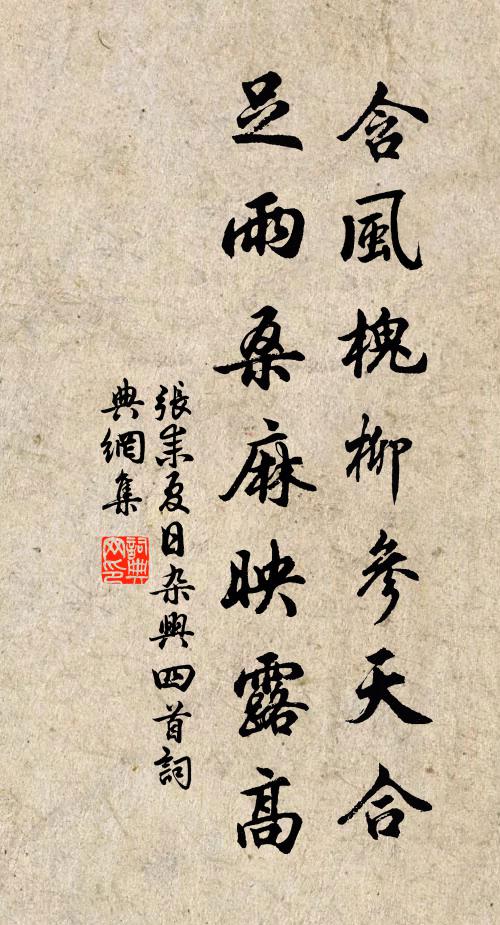 含風槐柳參天合
足雨桑麻映露高
張耒夏日杂興四首詞
典網集
詞典网印